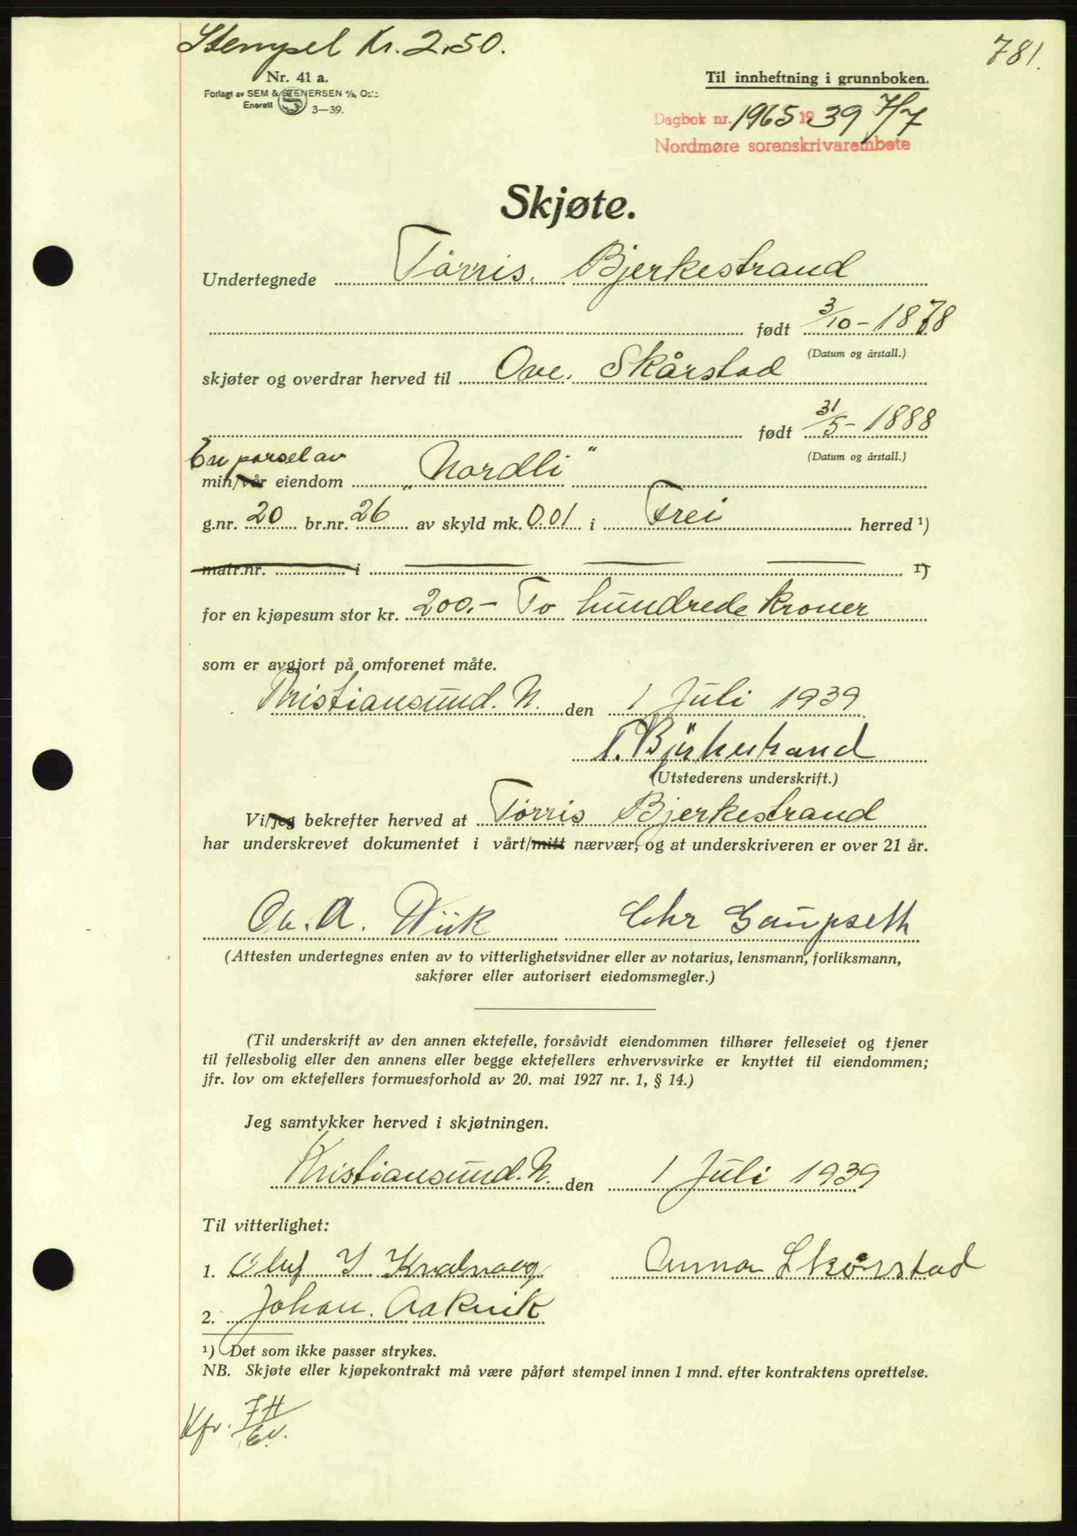 Stempel Kr. 2.50.
781.
Nr. 41 a.
Forlagt av SEM & STENERSEN A/S, Oslo
Enerett 3—39.
Til innheftning i grunnboken.
Dagbok nr. 1965 1939 7/7
Nordmøre sorenskrivarembete
Skjøte.
Undertegnede Tørris. Bjerkestrand
født 3/10 - 1878
(Datum og årstall.)
skjøter og overdrar herved til Ove. Skårstad
født 31/5 - 1888
(Datum og årstall.)
En parsel av
min/vår eiendom „Nordli"
g.nr. 20 br.nr. 26 av skyld mk. 0.01 i Frei herred ¹)
matr.nr. i ¹)
for en kjøpesum stor kr. 200.- To hundrede kroner
som er avgjort på omforenet måte.
Kristiansund. N. den 1 Juli 1939
T. Bjerkestrand
(Utstederens underskrift.)
Vi/jeg bekrefter herved at Tørris Bjerkestrand
har underskrevet dokumentet i vårt/mitt nærvær, og at underskriveren er over 21 år.
A. Wiik Chr Gaupseth
(Attesten undertegnes enten av to vitterlighetsvidner eller av notarius, lensmann, forliksmann,
sakfører eller autorisert eiedomsmegler.)
(Til underskrift av den annen ektefelle, forsåvidt eiendommen tilhører felleseiet og tjener
til fellesbolig eller den annens eller begge ektefellers erhvervsvirke er knyttet til eiendommen;
jfr. lov om ektefellers formuesforhold av 20. mai 1927 nr. 1, § 14.)
Jeg samtykker herved i skjøtningen.
Kristiansund. N. den 1 Juli 1939
Til vitterlighet:
1. Oluf Skårstad
2. Johan. Aakvik
¹) Det som ikke passer strykes.
NB. Skjøte eller kjøpekontrakt må være påført stempel innen 1 mnd. efter kontraktens oprettelse.
Kfr.